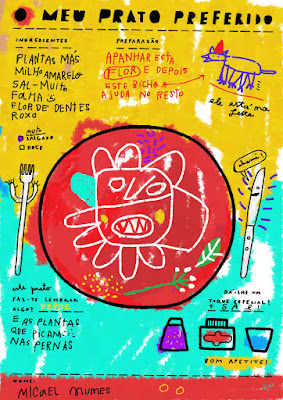 MEU PRATO PREFERIDO
INGREDIENTES
PREPARAÇÃO
PLANTAS MÁS
MILHO AMARELO
SAL-MUITO
FAMA
FLOR DE DENTES
ROXO
APANHAR ESTA
FLOR E DEPOIS
ESTE BICHO A
AJUDA NO RESTO
ele está na
festa
MUITO
SALGADO
DOCE
este prato
FAZ-TE LEMBRAR
ALGO?
E AS PLANTAS
QUE PICAM
NAS PERNAS
DÁ-LHE UM
TOQUE ESPECIAL!
BOM APETITE!
NOME:
MICAEL NUMES